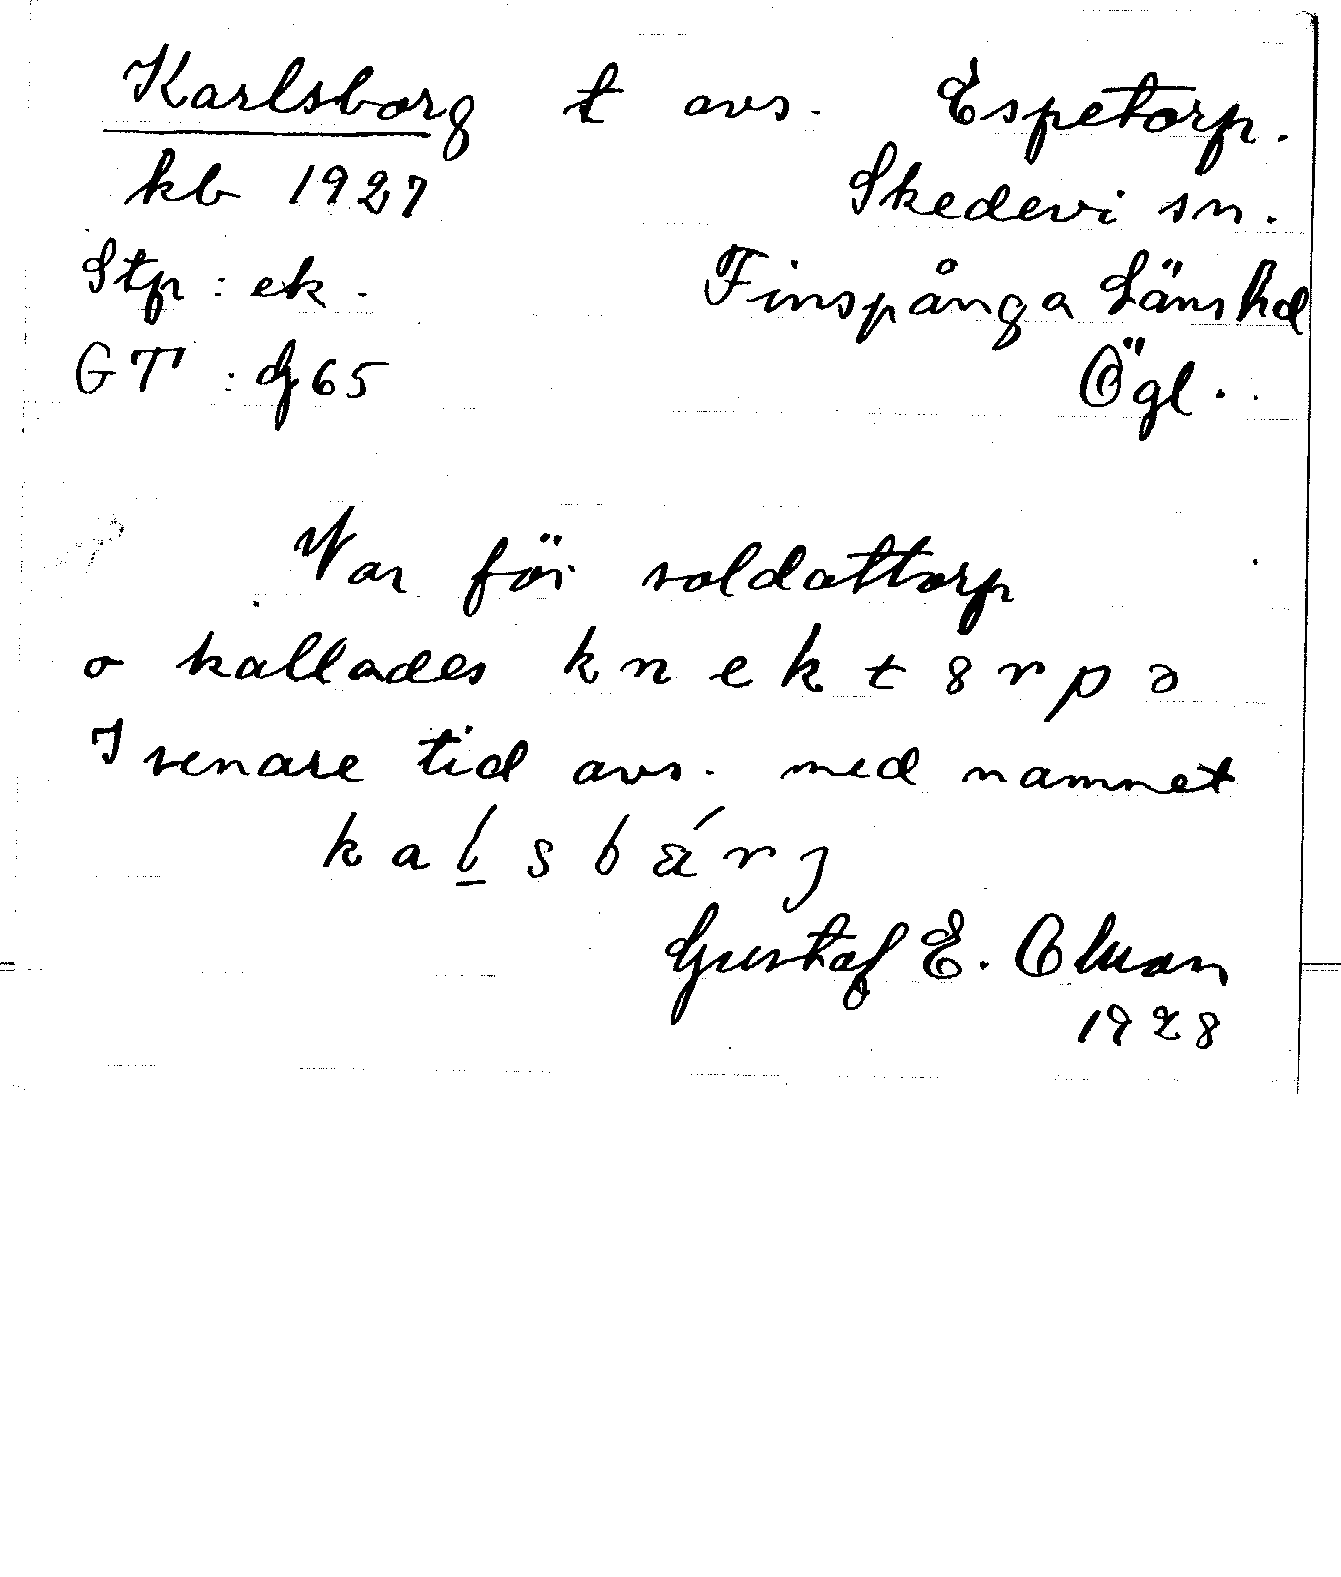 Karlsborg t avs. Espetorp.
kb 1927 Skedevi sn.
Stp: ek. Finspånga Länshd
GT: Gf65 Ögl.
Var för soldattorp
o kallades knektsrpə
I senare tid avs. med namnet
kaḻsbárj
Gustaf E. Olsson
1928